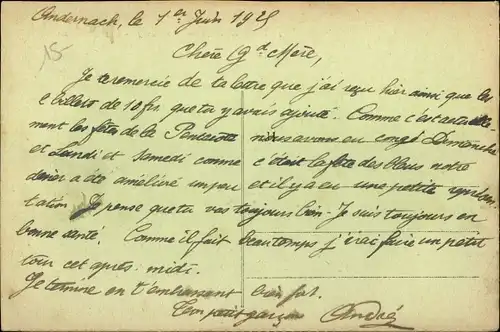 Andernach, le 1er Juin 1925
15-
Chère Gd Mère,
Je te remercie de ta lettre que j'ai reçu hier ainsi que les
billets de 10 fr. que tu y avais ajouté. Comme c'est actuelle
ment les fêtes de la Pentecôte nous avons eu congé Dimanche
et Lundi et Samedi comme c'était la fête des bleus notre
dîner a été amélioré un peu et il y a eu une petite représen
tation. Je pense que tu vas toujours bien. Je suis toujours en
bonne santé. Comme il fait beau temps j'irai faire un petit
tour cet après-midi.
Je termine en t'embrassant bien fort.
Ton petit garçon André